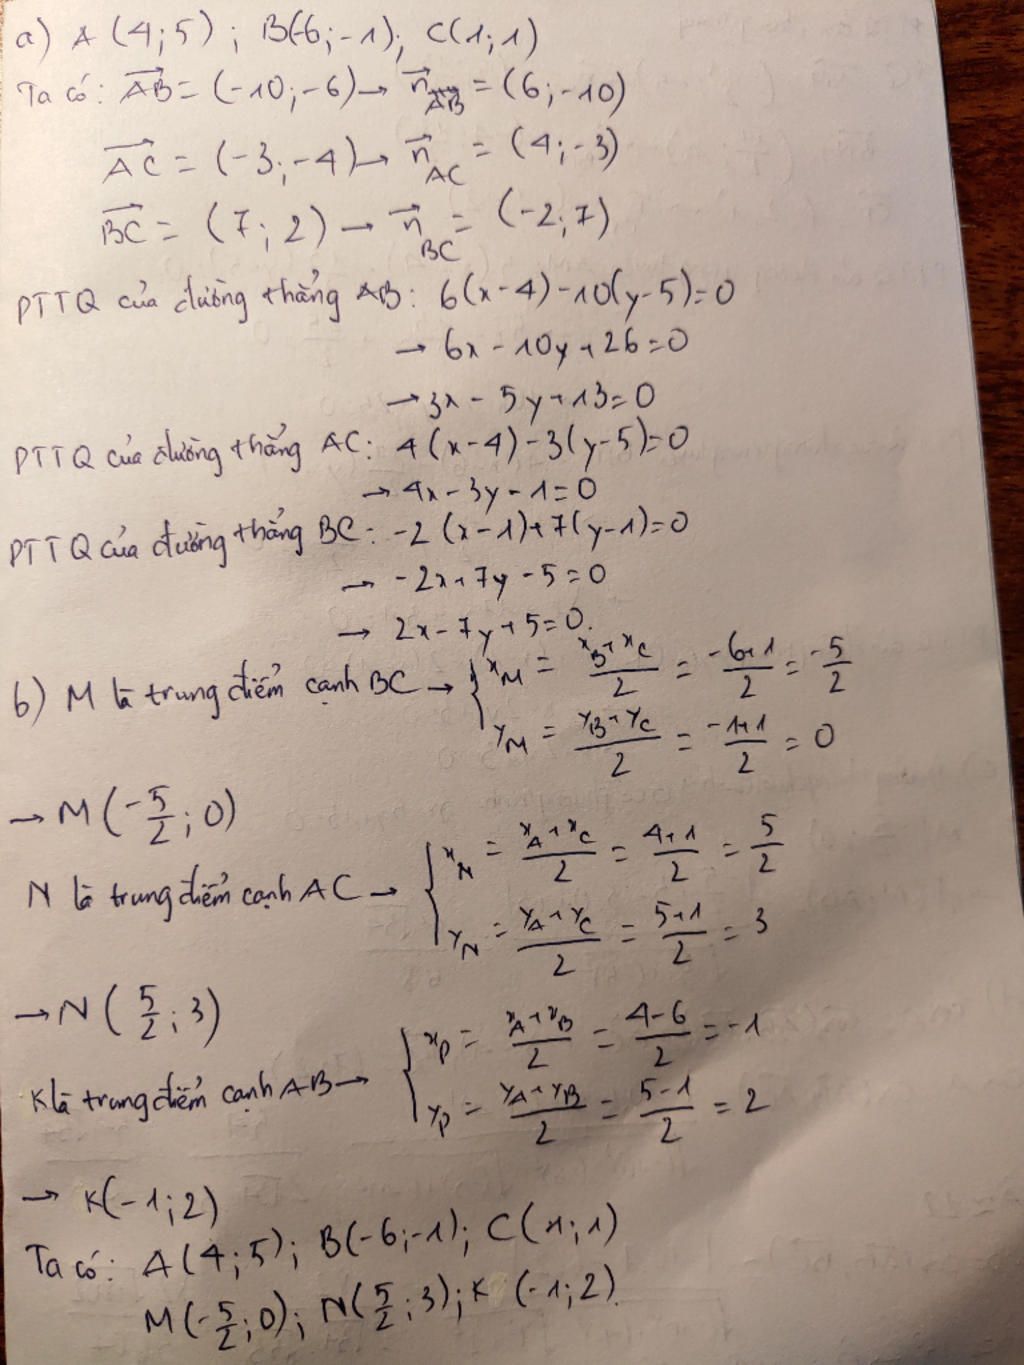 a) A (4;5) ; B(-6;-1); C(1;1)
Ta có: AB→ = (-10;-6) → n→_AB = (6;-10)
AC→ = (-3;-4) → n→_AC = (4;-3)
BC→ = (7;2) → n→_BC = (-2;7)
PTTQ của đường thẳng AB: 6(x-4)-10(y-5)=0
→ 6x - 10y + 26 = 0
→ 3x - 5y + 13 = 0
PTTQ của đường thẳng AC: 4(x-4)-3(y-5)=0
→ 4x - 3y - 1 = 0
PTTQ của đường thẳng BC: -2(x-1)+7(y-1)=0
→ -2x + 7y - 5 = 0
→ 2x - 7y + 5 = 0.
b) M là trung điểm cạnh BC → { x_M = (x_B + x_C)/2 = (-6+1)/2 = -5/2
y_M = (y_B + y_C)/2 = (-1+1)/2 = 0
→ M(-5/2; 0)
N là trung điểm cạnh AC → { x_N = (x_A + x_C)/2 = (4+1)/2 = 5/2
y_N = (y_A + y_C)/2 = (5+1)/2 = 3
→ N(5/2; 3)
K là trung điểm cạnh AB → { x_P = (x_A + x_B)/2 = (4-6)/2 = -1
y_P = (y_A + y_B)/2 = (5-1)/2 = 2
→ K(-1;2)
Ta có: A(4;5); B(-6;-1); C(1;1)
M(-5/2; 0); N(5/2; 3); K (-1;2).